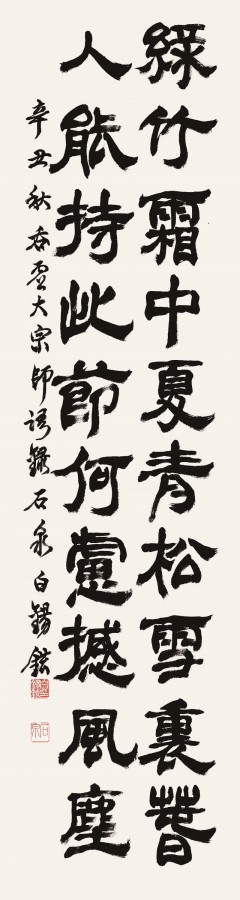 綠竹霜中夏青松雪裏春
人能持此節何處撼風塵
辛丑秋吞虛大宗師詩錄石泉白錫鉉